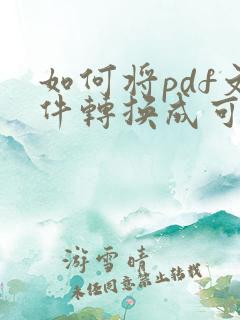 如何将pdf文
件轉换成可
游雪晴
未经同意禁止转载